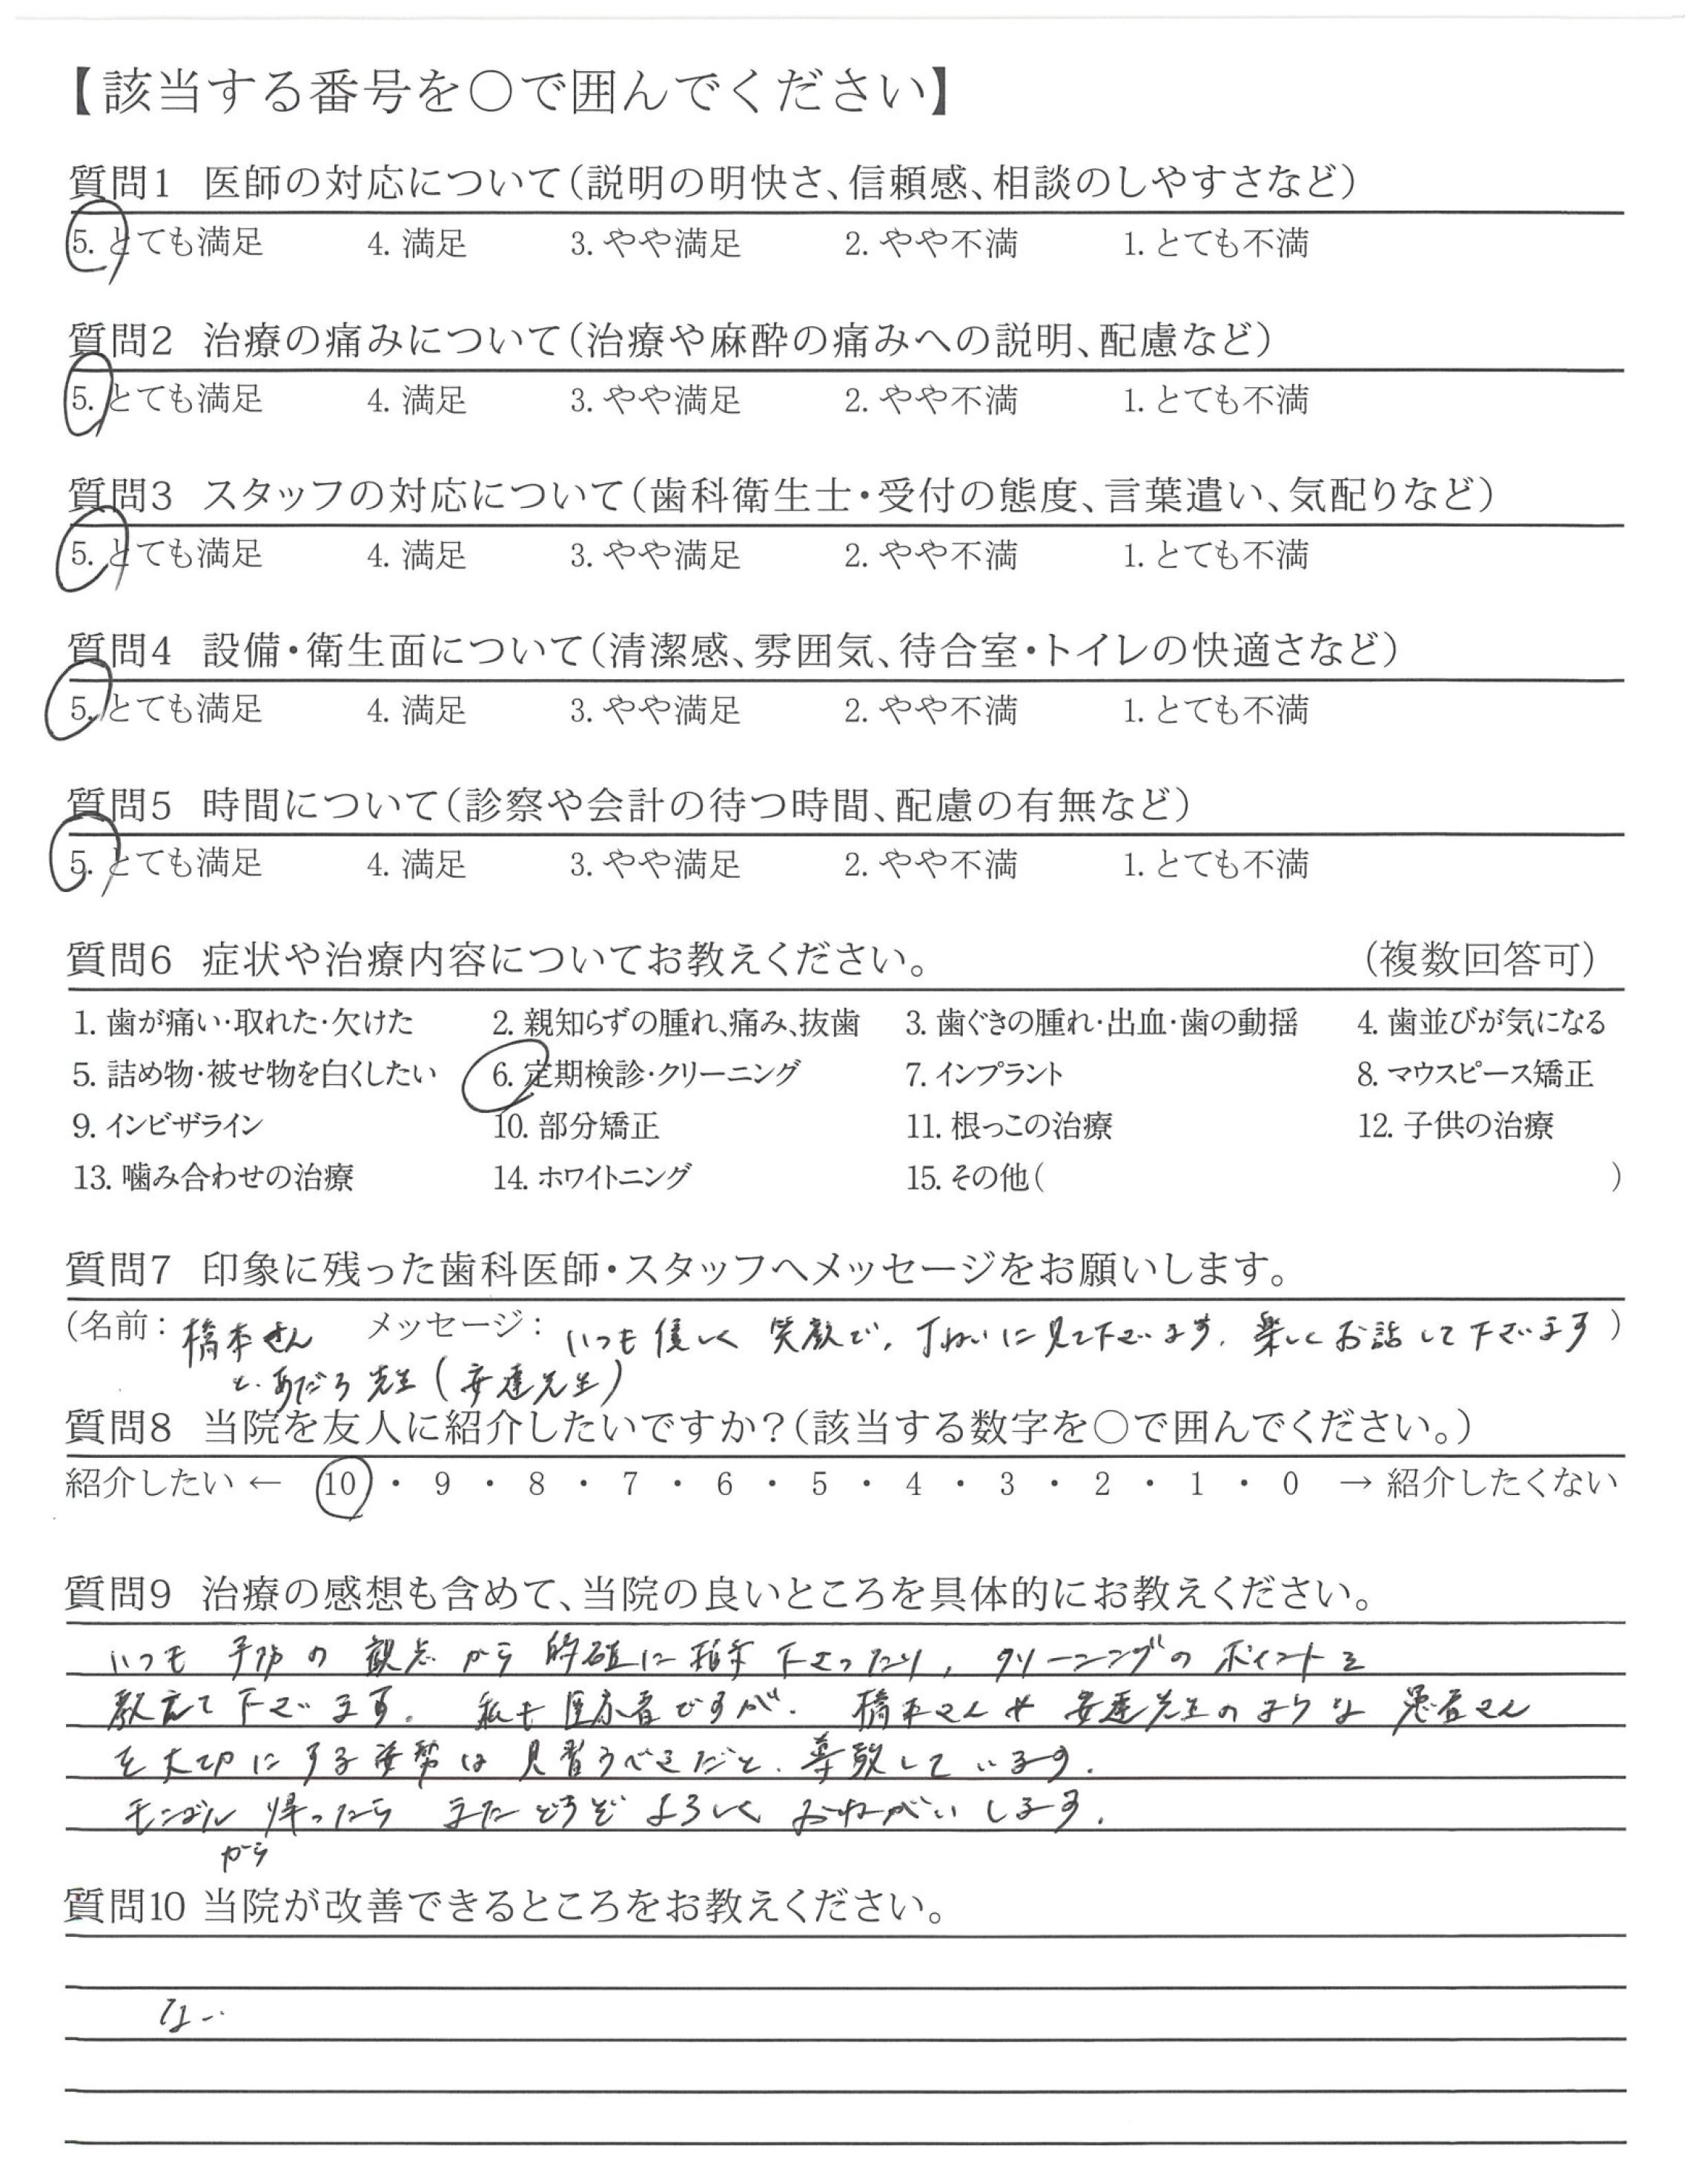 【該当する番号を○で囲んでください】
質問1 医師の対応について(説明の明快さ、信頼感、相談のしやすさなど)
5. とても満足 4. 満足 3. やや満足 2. やや不満 1. とても不満
質問2 治療の痛みについて(治療や麻酔の痛みへの説明、配慮など)
5. とても満足 4. 満足 3. やや満足 2. やや不満 1. とても不満
質問3 スタッフの対応について(歯科衛生士・受付の態度、言葉遣い、気配りなど)
5. とても満足 4. 満足 3. やや満足 2. やや不満 1. とても不満
質問4 設備・衛生面について(清潔感、雰囲気、待合室・トイレの快適さなど)
5. とても満足 4. 満足 3. やや満足 2. やや不満 1. とても不満
質問5 時間について(診察や会計の待つ時間、配慮の有無など)
5. とても満足 4. 満足 3. やや満足 2. やや不満 1. とても不満
質問6 症状や治療内容についてお教えください。 (複数回答可)
1. 歯が痛い・取れた・欠けた 2. 親知らずの腫れ、痛み、抜歯 3. 歯ぐきの腫れ・出血・歯の動揺 4. 歯並びが気になる
5. 詰め物・被せ物を白くしたい 6. 定期検診・クリーニング 7. インプラント 8. マウスピース矯正
9. インビザライン 10. 部分矯正 11. 根っこの治療 12. 子供の治療
13. 噛み合わせの治療 14. ホワイトニング 15. その他( )
質問7 印象に残った歯科医師・スタッフへメッセージをお願いします。
(名前: 橋本さん メッセージ: いつも優しく 笑顔で、丁ねいに見て下さいます。楽しくお話して下さいます)
と、あだち先生(安達先生)
質問8 当院を友人に紹介したいですか?(該当する数字を○で囲んでください。)
紹介したい ← 10 ・ 9 ・ 8 ・ 7 ・ 6 ・ 5 ・ 4 ・ 3 ・ 2 ・ 1 ・ 0 → 紹介したくない
質問9 治療の感想も含めて、当院の良いところを具体的にお教えください。
いつも 予防の 観点 から 的確に 指示 下さったり、クリーニングの ポイントを
教えて下さいます。 私も医療者ですが、橋本さんや 安達先生のような 患者さん
を大切にする姿勢は 見習うべきだと、尊敬しています。
モンゴル 帰ったら またどうぞ よろしく おねがいします。
から
質問10 当院が改善できるところをお教えください。
ない